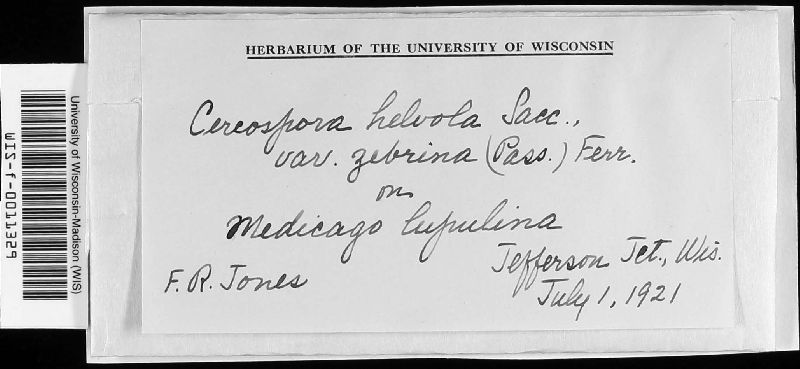 HERBARIUM OF THE UNIVERSITY OF WISCONSIN
Cercospora helvola Sacc.,
var. zebrina (Pass.) Ferr.
on
Medicago lupulina
Jefferson Jct., Wis.
F. R. Jones
July 1, 1921
University of Wisconsin-Madison (WIS)
WIS-f-0011329